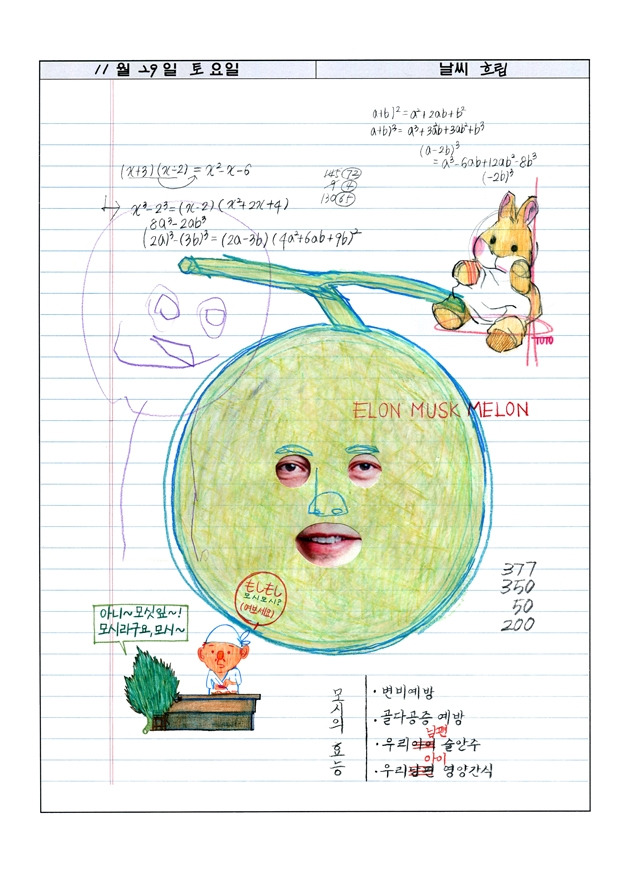 11월 29일 토요일
날씨 흐림
a+b)² = a²+2ab+b²
a+b)³ = a³+3a²b+3ab²+b³
(a-2b)³
= a³-6ab+12ab²-8b³
(-2b)³
(x+3)(x-2) = x²-x-6
145 72
9 4
130 65
x³-2³=(x-2)(x²+2x+4)
8a³-2ab³
(2a)³-(3b)³=(2a-3b)(4a²+6ab+9b)²
TUTO
ELON MUSK MELON
377
350
50
200
もしもし
모시모시?
(여보세요)
아니~모싯잎~!
모시라구요, 모시~
모시의 효능
· 변비예방
· 골다공증 예방
남편
· 우리 아이 술안주
아이
· 우리 남편 영양간식